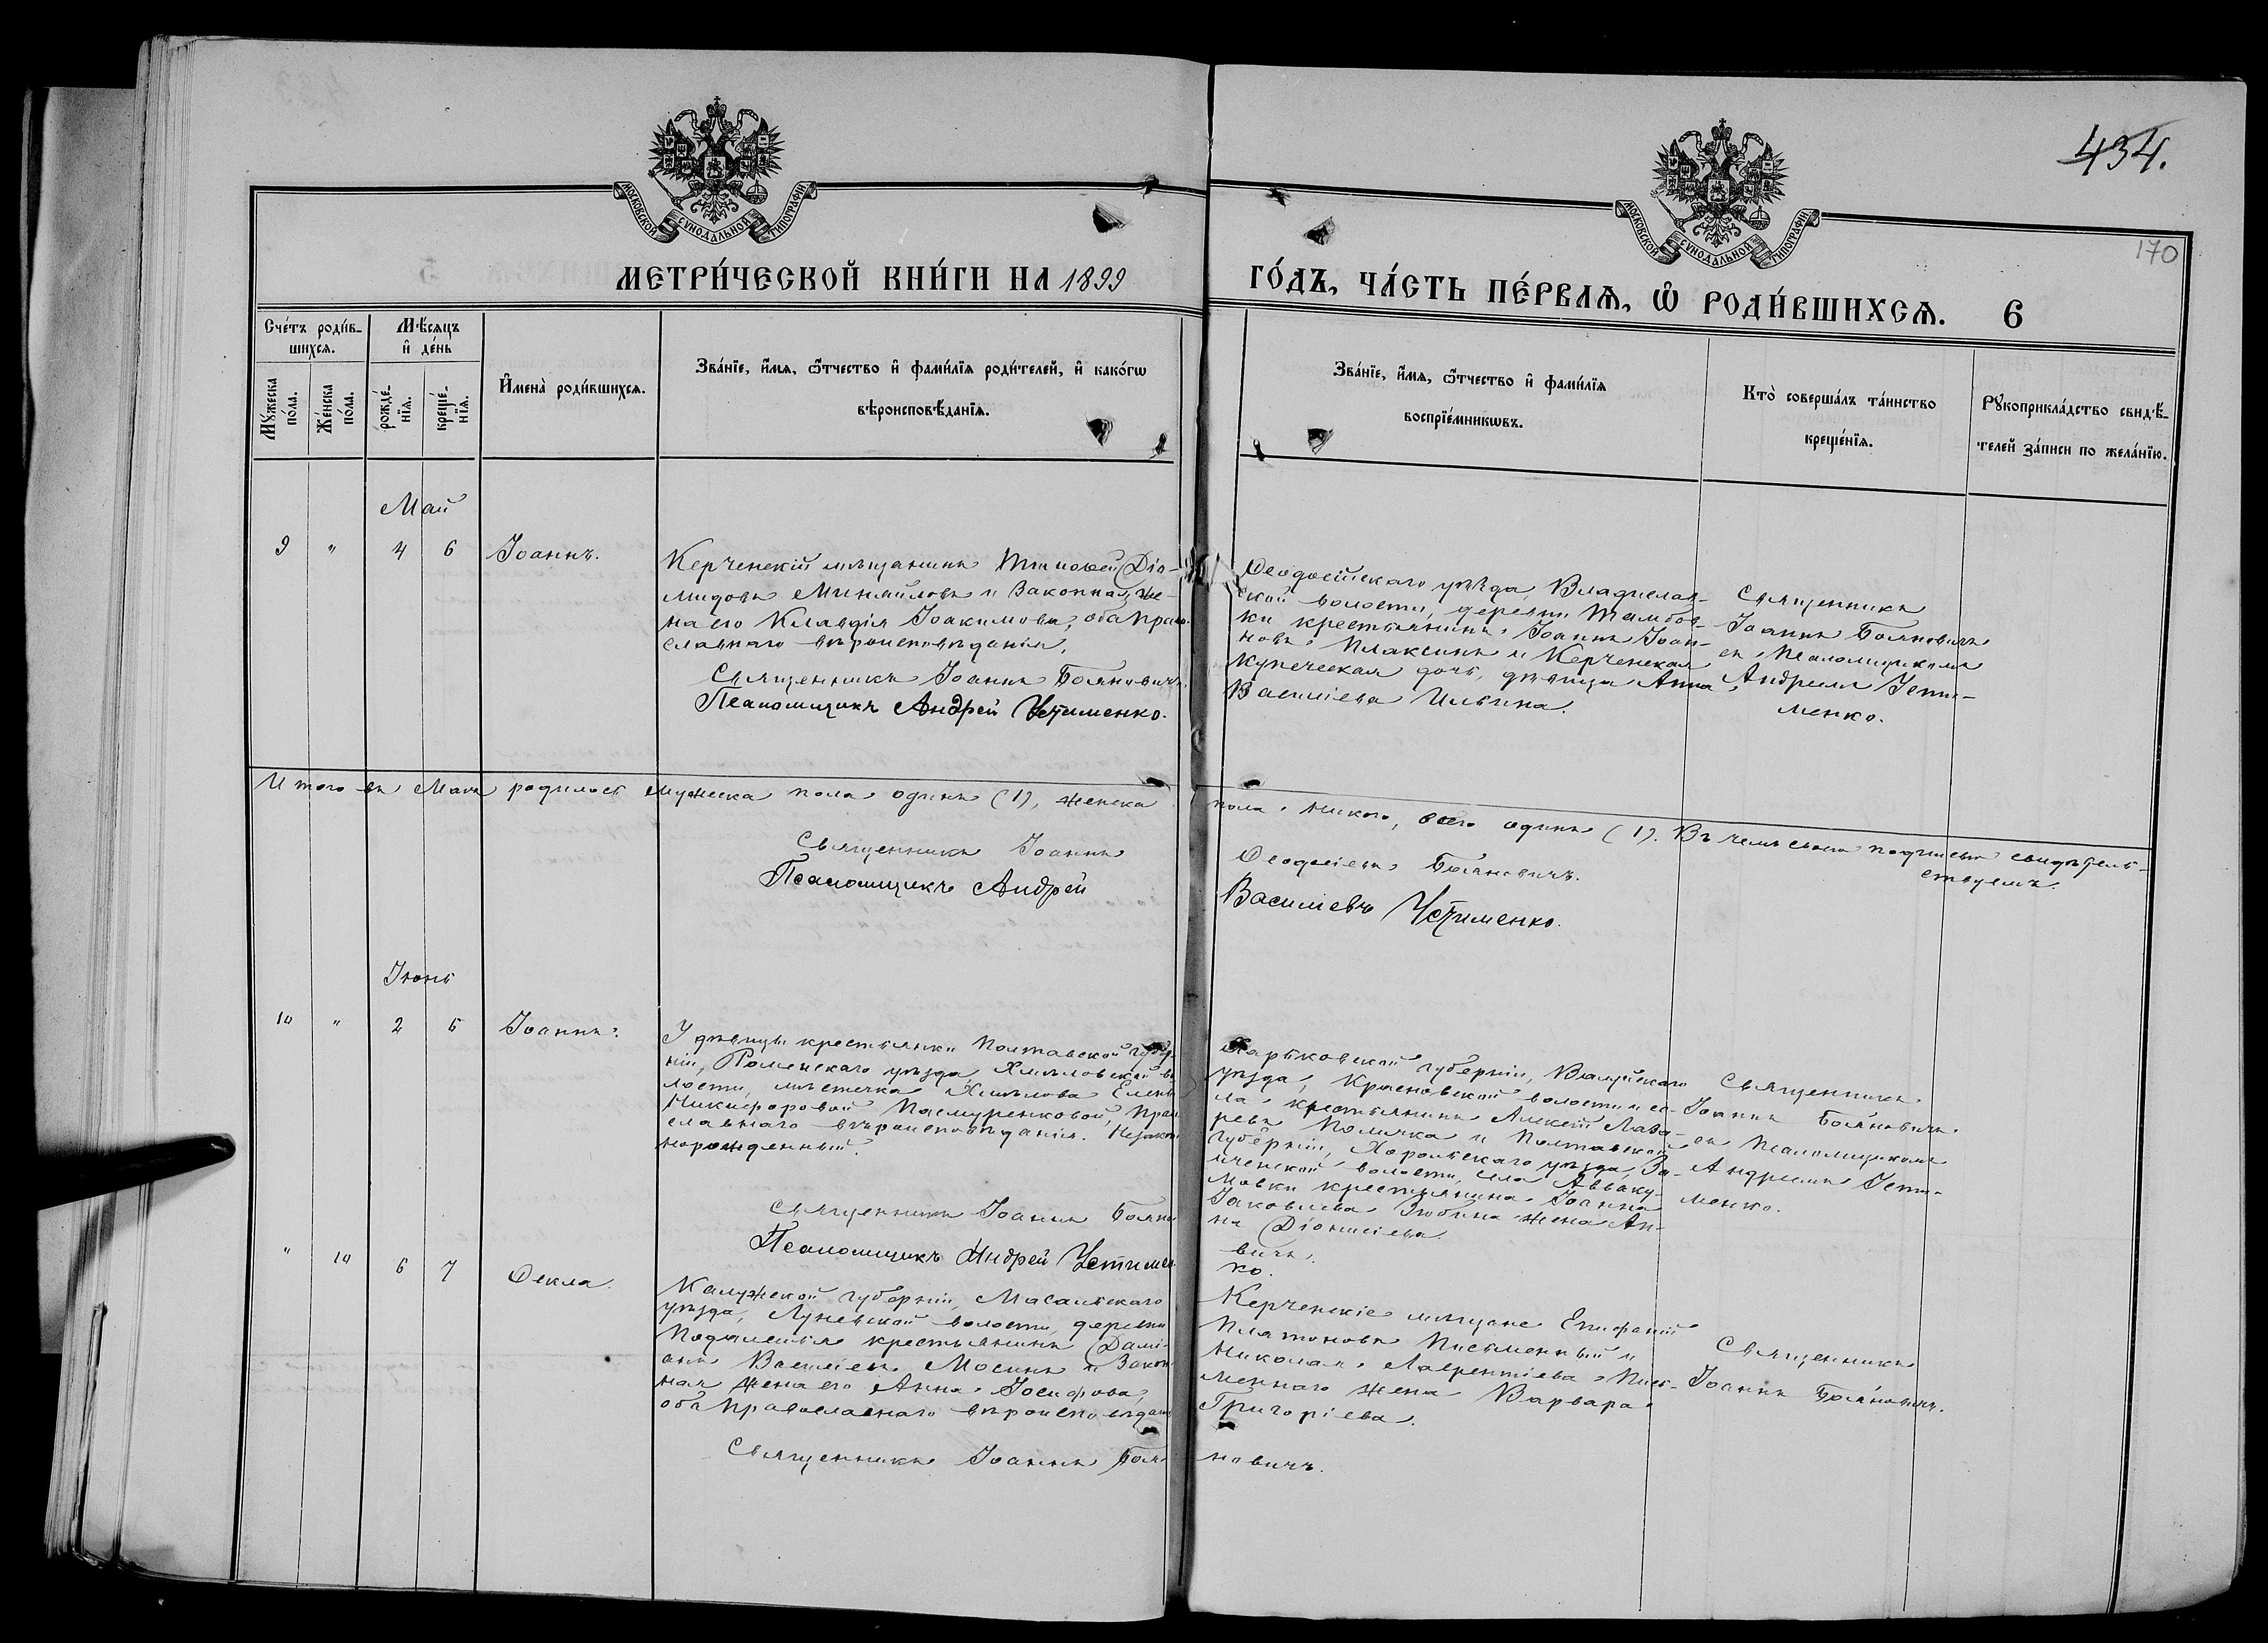 434.
170
МОСКОВСКОЙ СѴНОДАЛЬНОЙ ТИПОГРАФІИ
МОСКОВСКОЙ СѴНОДАЛЬНОЙ ТИПОГРАФІИ
МЕТРИ́ЧЕСКОЙ КНИ́ГИ НА 1899
ГО́ДЪ, ЧА́СТЬ ПЕ́РВАѦ, Ѽ РОДИ́ВШИХСѦ. 6
Сче́тъ роди́в-
шихсѧ.
Мѣ́сѧцъ
и҆ де́нь
Мꙋ́жеска
по́ла.
Же́нска
по́ла.
рожде́-
нїѧ.
креще́-
нїѧ.
И҆мена̀ роди́вшихсѧ.
Зва́нїе, и҆́мѧ, ѻ҆́тчество и҆ фами́лїѧ роди́телей, и҆ како́гѡ
вѣроисповѣ́данїѧ.
Зва́нїе, и҆́мѧ, ѻ҆́тчество и҆ фами́лїѧ
воспрїе́мникѡвъ.
Кто̀ соверша́лъ та́инство
креще́нїѧ.
Рꙋкоприкла́дство свидѣ́-
телей за́писи по жела́нїю.
Май
9 " 4 6 Іоаннъ.
Керченскій мѣщанинъ Тимоѳей Діо-
мидовъ Михайловъ и законная же-
на его Клавдія Іоакимова, оба право-
славнаго вѣроисповѣданія.
Священникъ Іоаннъ Бояновичъ.
Псаломщикъ Андрей Устименко.
Ѳеодосійскаго уѣзда, Владислав-
ской волости, деревни Тамбов-
ки крестьянинъ Іоаннъ Іоан-
новъ Плаксинъ и Керченская
купеческая дочь, дѣвица Анна
Василіева Ильина.
Священникъ
Іоаннъ Бояновичъ
съ псаломщикомъ
Андреемъ Усти-
менко.
Итого въ Маѣ родилось мужеска пола одинъ (1), женска
пола никого, всего одинъ (1). Въ чемъ своею подписью свидѣтель-
ствуемъ.
Священникъ Іоаннъ
Ѳеодосіевъ Бояновичъ.
Псаломщикъ Андрей
Василіевъ Устименко.
Іюнь
10 " 2 6 Іоаннъ.
У дѣвицы крестьянки Полтавской губер-
ніи, Роменскаго уѣзда, Хмѣловской во-
лости, мѣстечка Хмѣлова Елены
Никифоровой Пасмуренковой, право-
славнаго вѣроисповѣданія. Незакон-
норожденный.
Священникъ Іоаннъ Бояно-
Псаломщикъ Андрей Устимен-
Харьковской губерніи, Валуйскаго
уѣзда, Красновской волости и се-
ла крестьянинъ Алексій Лаза-
ревъ Поличка и Полтавской
губерніи, Хорольскаго уѣзда, За-
иченской волости, села Аввaку-
мовки крестьянина Іоанна
Іаковлева Зюбина жена Ан-
на Діонисіева.
вичъ.
ко.
Священникъ
Іоаннъ Бояновичъ
съ псаломщикомъ
Андреемъ Усти-
менко.
" 10 6 7 Ѳекла.
Калужской губерніи, Масальскаго
уѣзда, Луневской волости, деревни
Подалешья крестьянинъ Дамі-
анъ Василіевъ Мосинъ и закон-
ная жена его Анна Іосифова,
оба православнаго вѣроисповѣдан.
Священникъ Іоаннъ Боя-
Керченскіе мѣщане Епифаній
Платоновъ Письменный и
Николая Лаврентіева Пись-
меннаго жена Варвара
Григоріева.
новичъ.
Священникъ
Іоаннъ Бояновичъ.